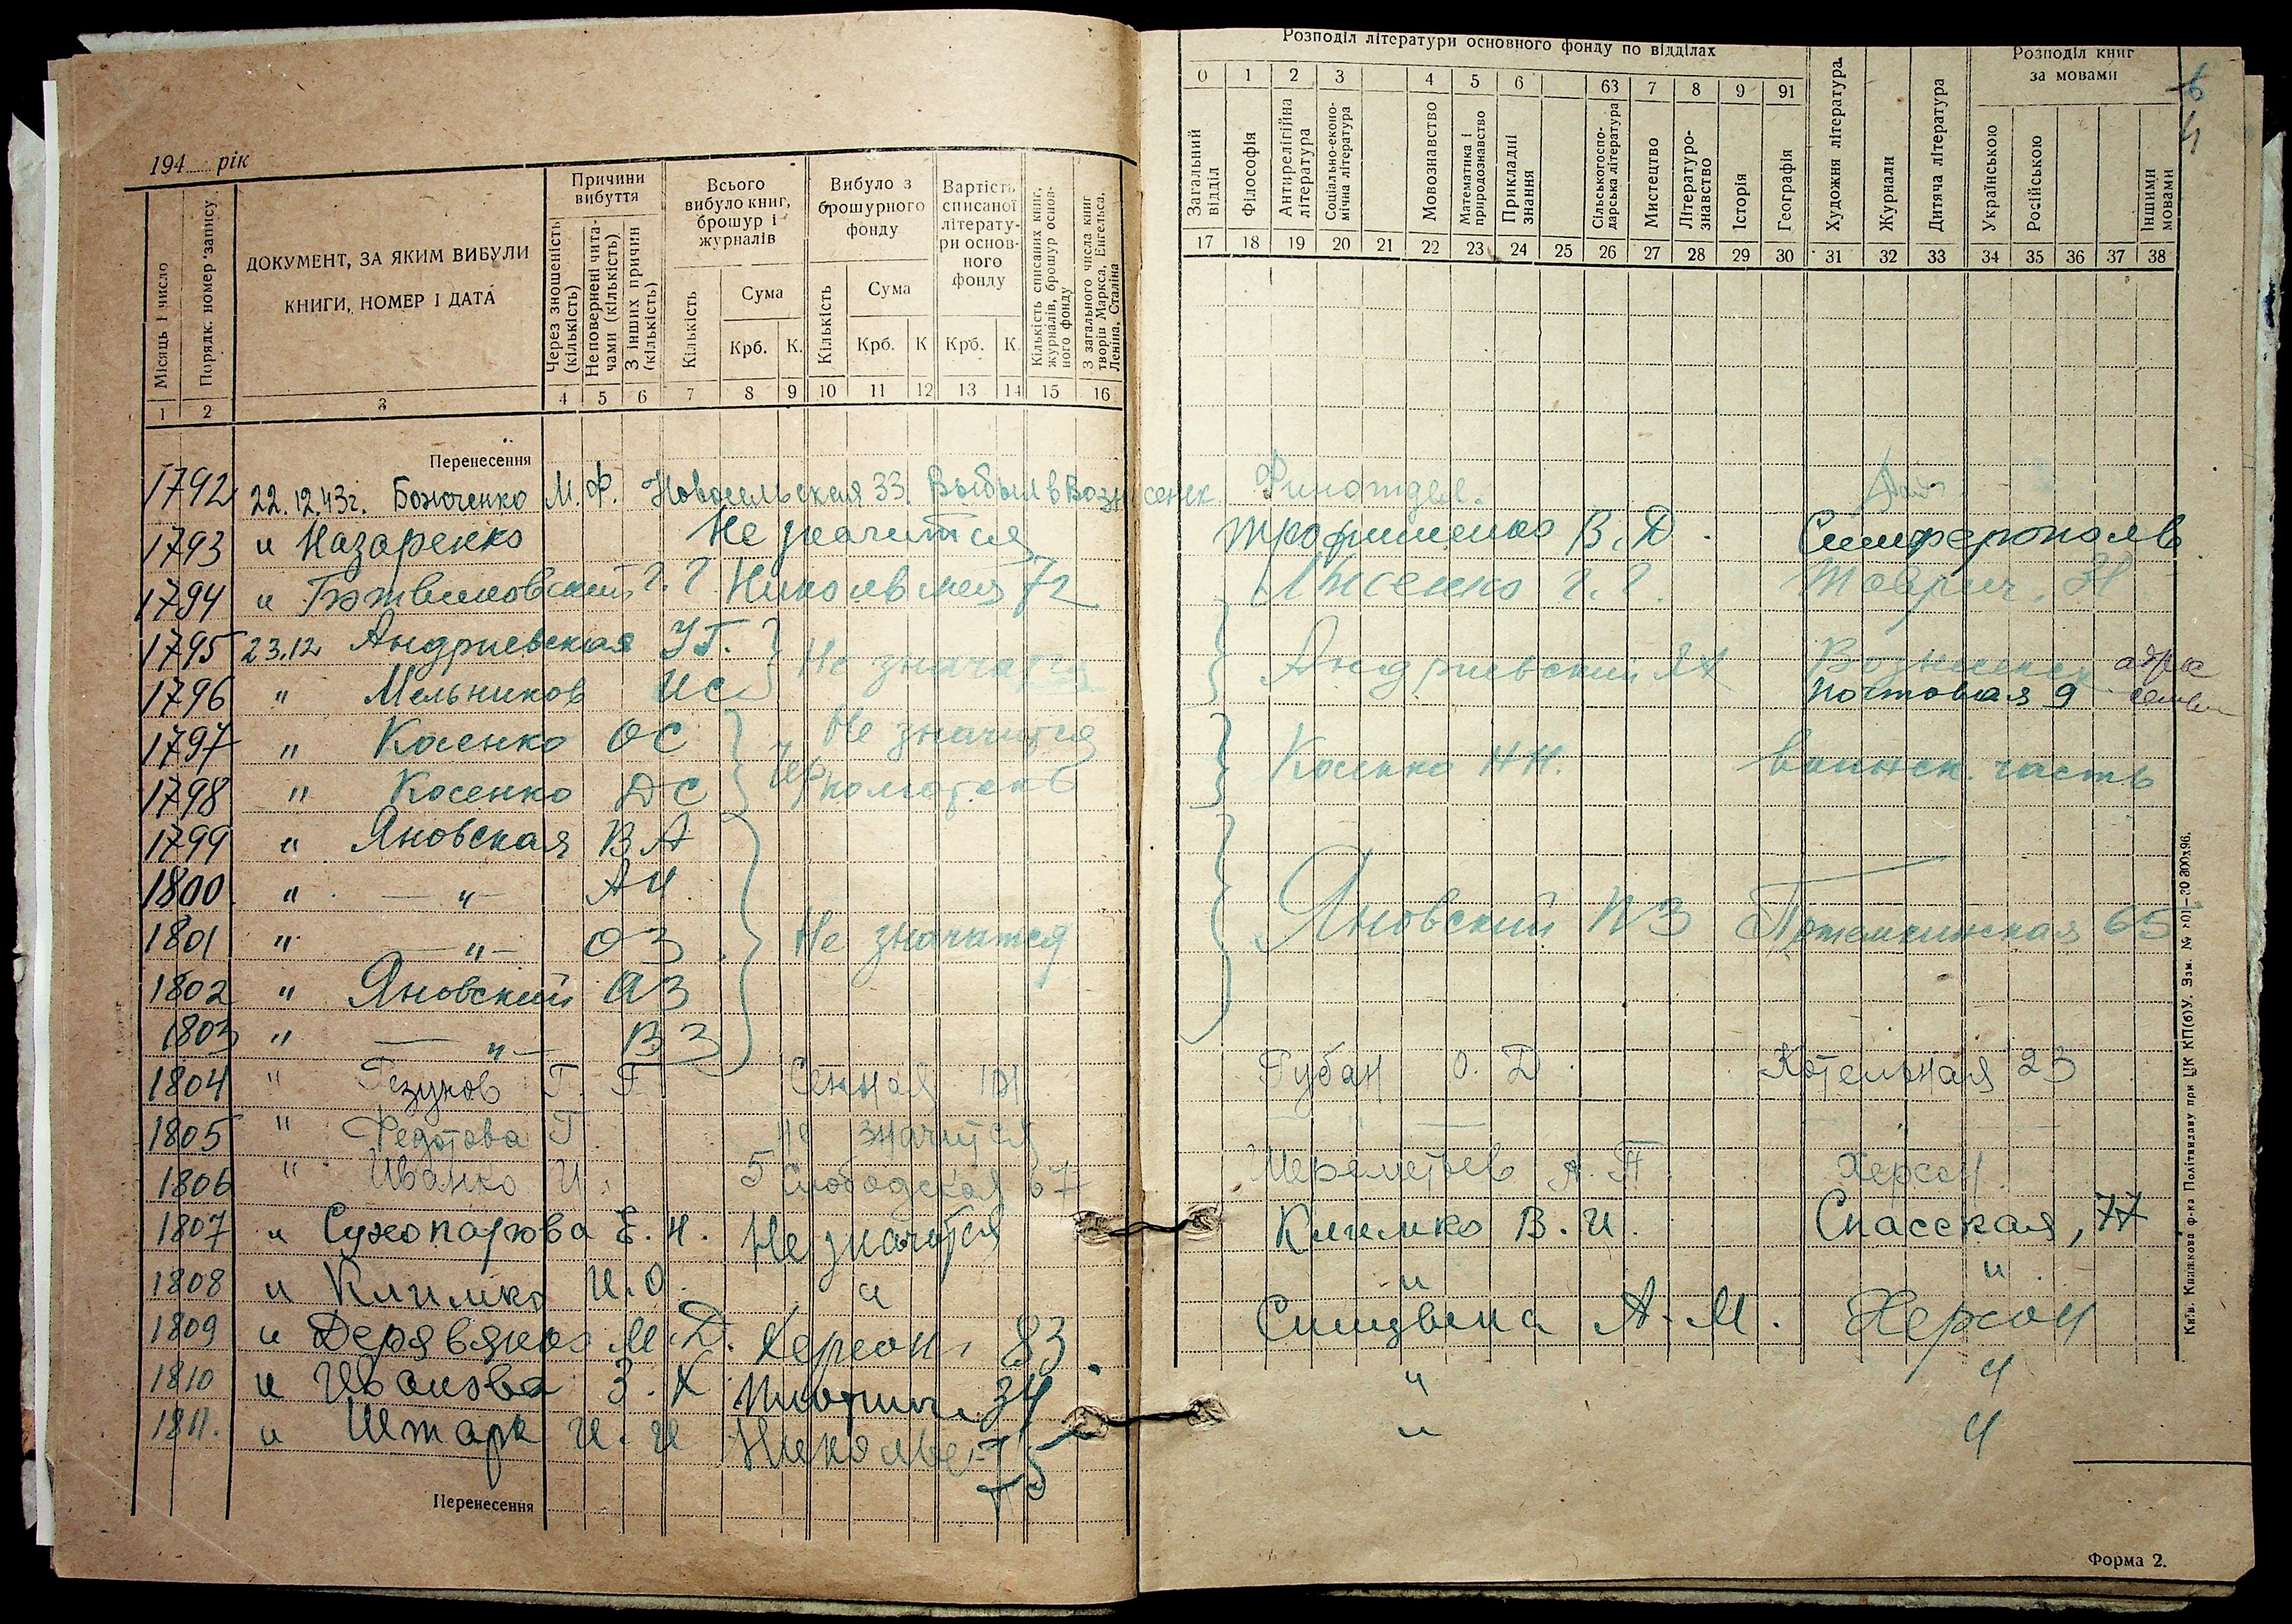 194 рік
Місяць і число
Порядк. номер запису
ДОКУМЕНТ, ЗА ЯКИМ ВИБУЛИ
КНИГИ, НОМЕР І ДАТА
Причини вибуття
Через зношеність (кількість)
Неповернені читачами (кількість)
З інших причин (кількість)
Всього вибуло книг, брошур і журналів
Кількість
Сума
Крб. К.
Вибуло з брошурного фонду
Кількість
Сума
Крб. К
Вартість списаної літератури основного фонду
Крб. К.
Кількість списаних книг, журналів, брошур основного фонду
З загального числа книг творів Маркса, Енгельса, Леніна, Сталіна
1 2 3 4 5 6 7 8 9 10 11 12 13 14 15 16
Розподіл літератури основного фонду по відділах
0 1 2 3 4 5 6 63 7 8 9 91
Загальний відділ
Філософія
Антирелігійна література
Соціально-економічна література
Мовознавство
Математика і природознавство
Прикладні знання
Сільськогосподарська література
Мистецтво
Літературознавство
Історія
Географія
Художня література
Журнали
Дитяча література
Розподіл книг за мовами
Українською
Російською
Іншими мовами
17 18 19 20 21 22 23 24 25 26 27 28 29 30 31 32 33 34 35 36 37 38
Перенесення
1792 22.12.43г. Боюченко М. Ф. Новосельская 33. Выбыл в Вознесенск. Финотдел.
1793 " Назаренко Не значится Трофименко В. Д. Симферополь
1794 " Г. Г. Николывская 72 Г. Г. Таврич.
1795 23.12 Андриевская У Г. Не значатся Андриевский Вознесенск адрес
1796 " Мельников И С Почтовая 9 семьи
1797 " Косенко О С Не значится Косенко Н Н. воинск. часть
1798 " Косенко Д С
1799 " Яновская В А
1800 " — " — А И
1801 " — " — О З Не значатся Яновский П З Потемкинская 65
1802 " Яновский А З
1803 " — " — В З
1804 " Гезунов Г. Г Сенная Губан О. Д. Котельная 23
1805 " Федотова Г. Не значится — " —
1806 " Иванко И. 5 Слободская 67 Шереметьев А. П. Херсон.
1807 " Сухопарова Е. Н. Не значатся Климко В. И. Спасская, 77
1808 " Климко И. О. " " "
1809 " Деревянко М. Д. Херсон. 83. А. М. Херсон
1810 " Иванова З. К 34 " "
1811. " Штарк И. И Никольс. 75 " "
Перенесення
Київ. Книжкова ф-ка Політвидаву при ЦК КП(б)У.
Форма 2.